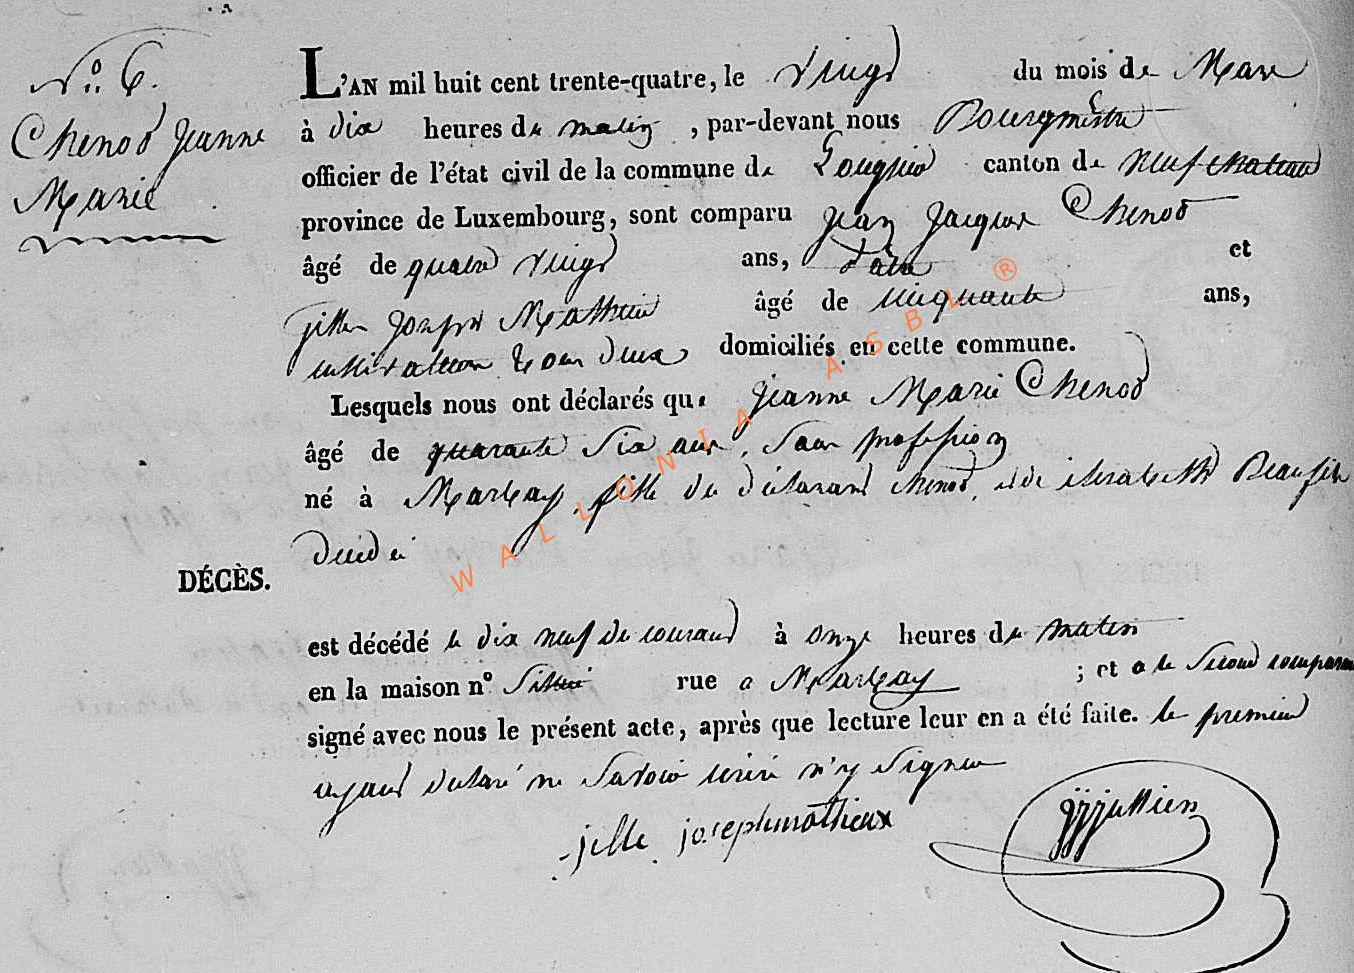 N° 6.
Chenod Jeanne
Marie
L'AN mil huit cent trente-quatre, le vingt du mois de Mars
à dix heures du matin, par-devant nous Bourgmestre
officier de l'état civil de la commune de canton de neufchateau
province de Luxembourg, sont comparu jean jacques Chenod
âgé de quatre vingt ans, et
jille joseph Mathieu âgé de cinquante ans,
cultivateur tous deux domiciliés en cette commune.
Lesquels nous ont déclarés que jeanne Marie Chenod
âgé de quarante six ans, sans profession
né à Marbay, fille du déclarant chenod, et de elisabeth
décédé
DÉCÈS.
est décédé le dix neuf du courant à onze heures du matin
en la maison n° rue a Marbay ; et a le second comparant
signé avec nous le présent acte, après que lecture leur en a été faite. le premier
ayant déclaré ne savoir écrire n'y signer
jille josephmathieux
WALLONIA ASBL ®